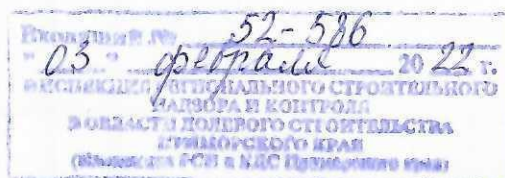 Входящий № 52-586
"03" февраля 2022 г.
ИНСПЕКЦИЯ РЕГИОНАЛЬНОГО СТРОИТЕЛЬНОГО
НАДЗОРА И КОНТРОЛЯ
В ОБЛАСТИ ДОЛЕВОГО СТРОИТЕЛЬСТВА
ПРИМОРСКОГО КРАЯ
(Инспекция РСН и КДС Приморского края)